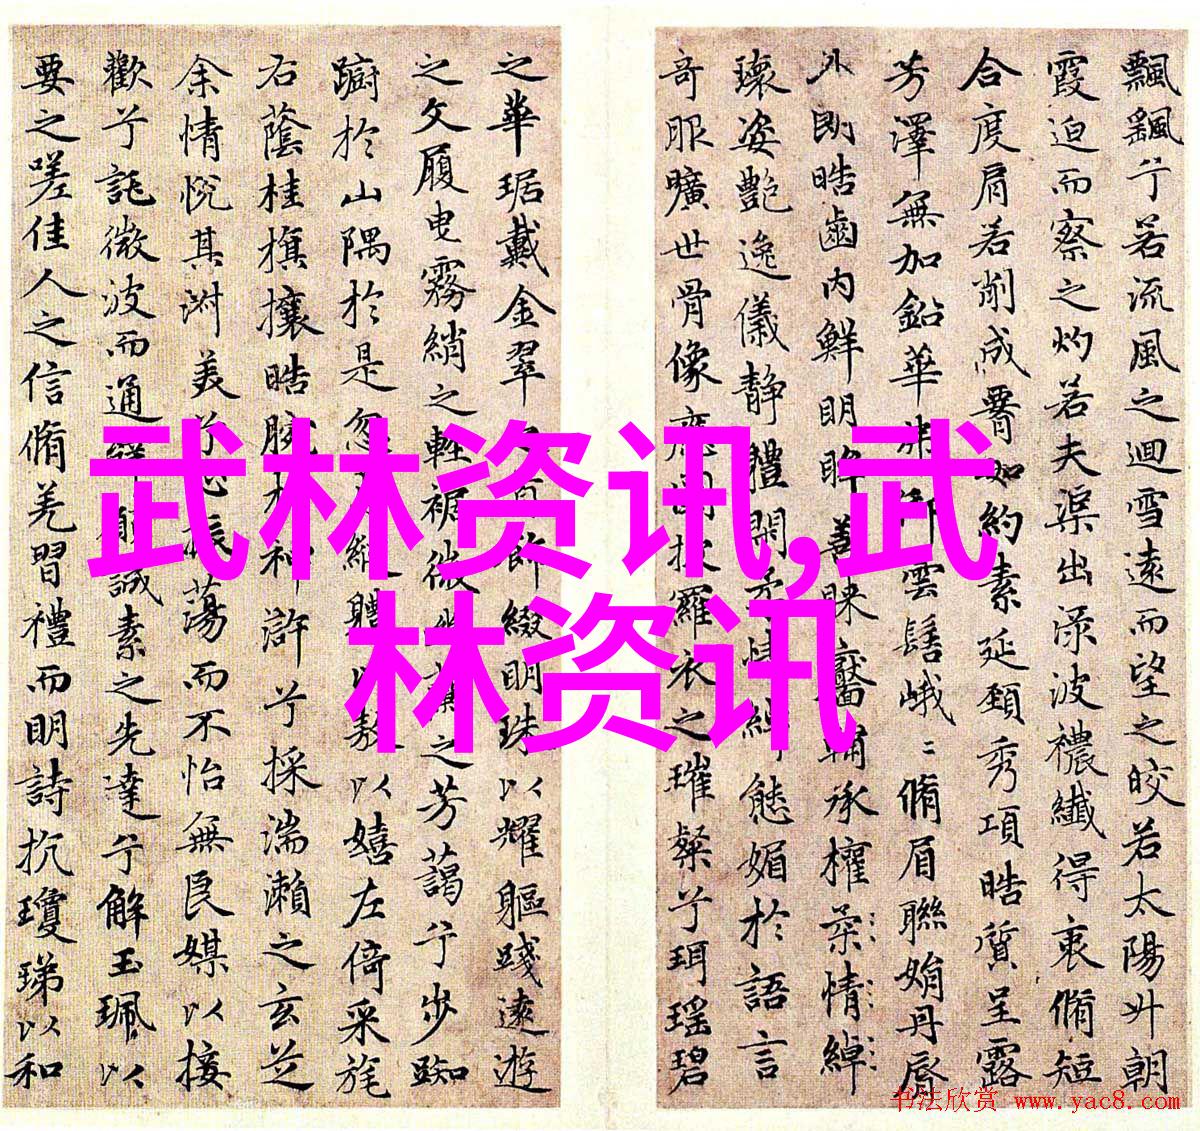 飄飖兮若流風之迴雪遠而望之皎若太陽升朝
霞迫而察之灼若夫渠出淥波襛纖得衷脩短
合度肩若削成如約素延頸秀項皓質呈露
芳澤無加鉛華弗御雲髻峨〻脩眉聯娟丹脣
外朗皓齒内鮮明眸善睞靨輔承權柔情綽
瓌姿艷逸儀靜體閑柔情綽態媚於語言
奇服曠世骨像應圖披羅衣之璀粲兮珥瑤碧
之華琚戴金翠之首飾綴明珠以耀軀踐遠遊
之文履曳霧綃之輕裾微幽蘭之芳藹兮步踟
蹰於山隅於是忽焉縱體以敖以嬉左倚采旄
右蔭桂旗攘皓腕於神滸兮採湍瀨之玄芝
余情悅其淑美兮心振蕩而不怡無良媒以接
歡兮託微波而通辭願誠素之先達兮解玉珮以
要之嗟佳人之信脩羌習禮而明詩抗瓊珶以和
武林资讯,武
林资讯
书法欣赏 www.yac8.com